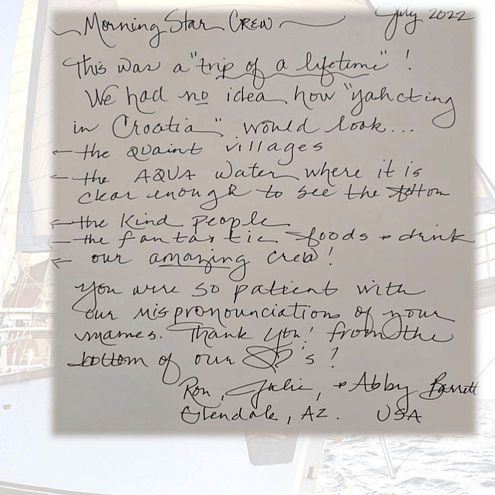 Morning Star Crew July 2022
This was a "trip of a lifetime"!
We had no idea how "yahcting
in Croatia" would look...
← the quaint villages
← the AQUA water where it is
clear enough to see the bottom
← the kind people
← the fantastic foods & drink
← our amazing crew!
You were so patient with
our mispronounciations of your
names. Thank you! from the
bottom of our ♡'s!
Ron, Julie, & Abby Barrett
Glendale, AZ. USA